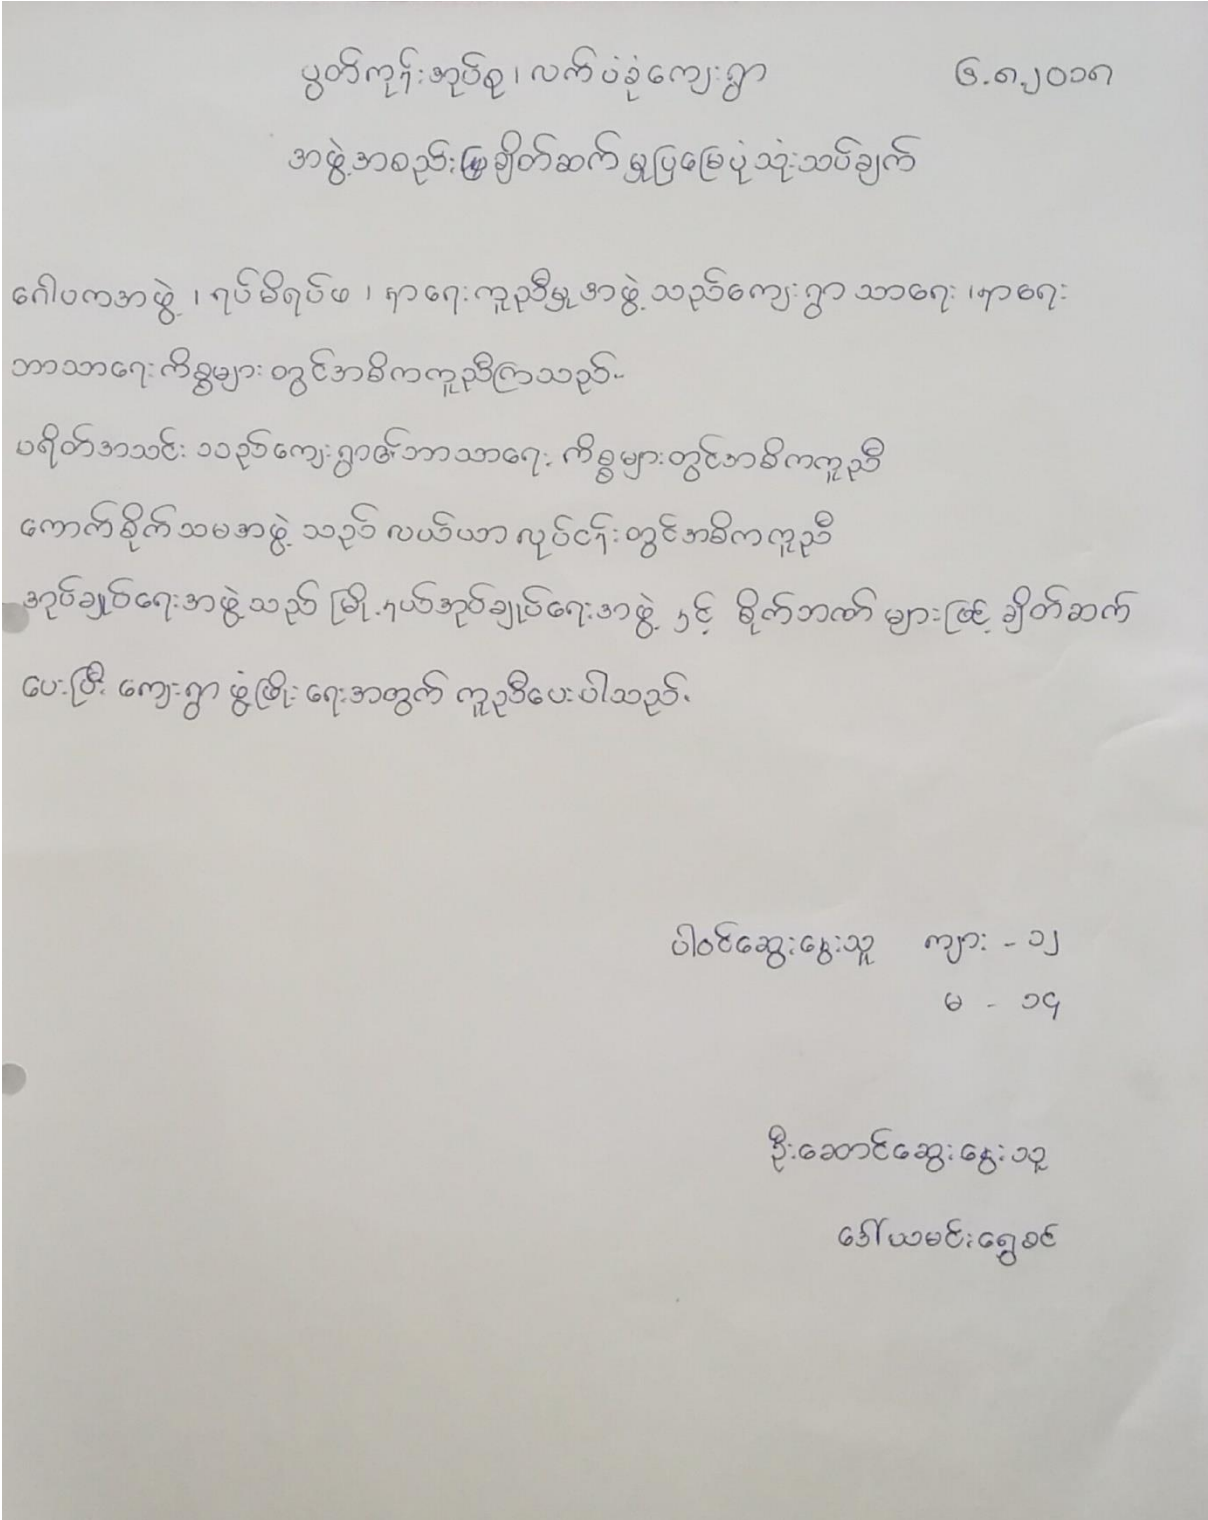 ပွတ်ကုန်းအုပ်စု၊ လက်ပံခုံကျေးရွာ ၆.၈.၂၀၁၈
အဖွဲ့အစည်းချိတ်ဆက်မှုပြမြေပုံသုံးသပ်ချက်
ဂေါပကအဖွဲ့ ၊ ရပ်မိရပ်ဖ ၊ နာရေးကူညီမှုအဖွဲ့သည်ကျေးရွာ သာရေး ၊နာရေး
ဘာသာရေးကိစ္စများတွင်အဓိကကူညီကြသည်။
ပရိတ်အသင်းသည်ကျေးရွာ၏ဘာသာရေးကိစ္စများတွင်အဓိကကူညီ
ကောက်စိုက်သမအဖွဲ့သည် လယ်ယာ လုပ်ငန်းတွင်အဓိကကူညီ
အုပ်ချုပ်ရေးအဖွဲ့သည် မြို့နယ်အုပ်ချုပ်ရေးအဖွဲ့ နှင့် စိုက်ဘဏ်များဖြင့် ချိတ်ဆက်
ပေးပြီး ကျေးရွာ ဖွံ့ဖြိုးရေးအတွက် ကူညီပေးပါသည်။
ပါဝင်ဆွေးနွေးသူ ကျား - ၁၂
မ - ၁၄
ဦးဆောင်ဆွေးနွေးသူ
ဒေါ်ယမင်းရွှေစင်